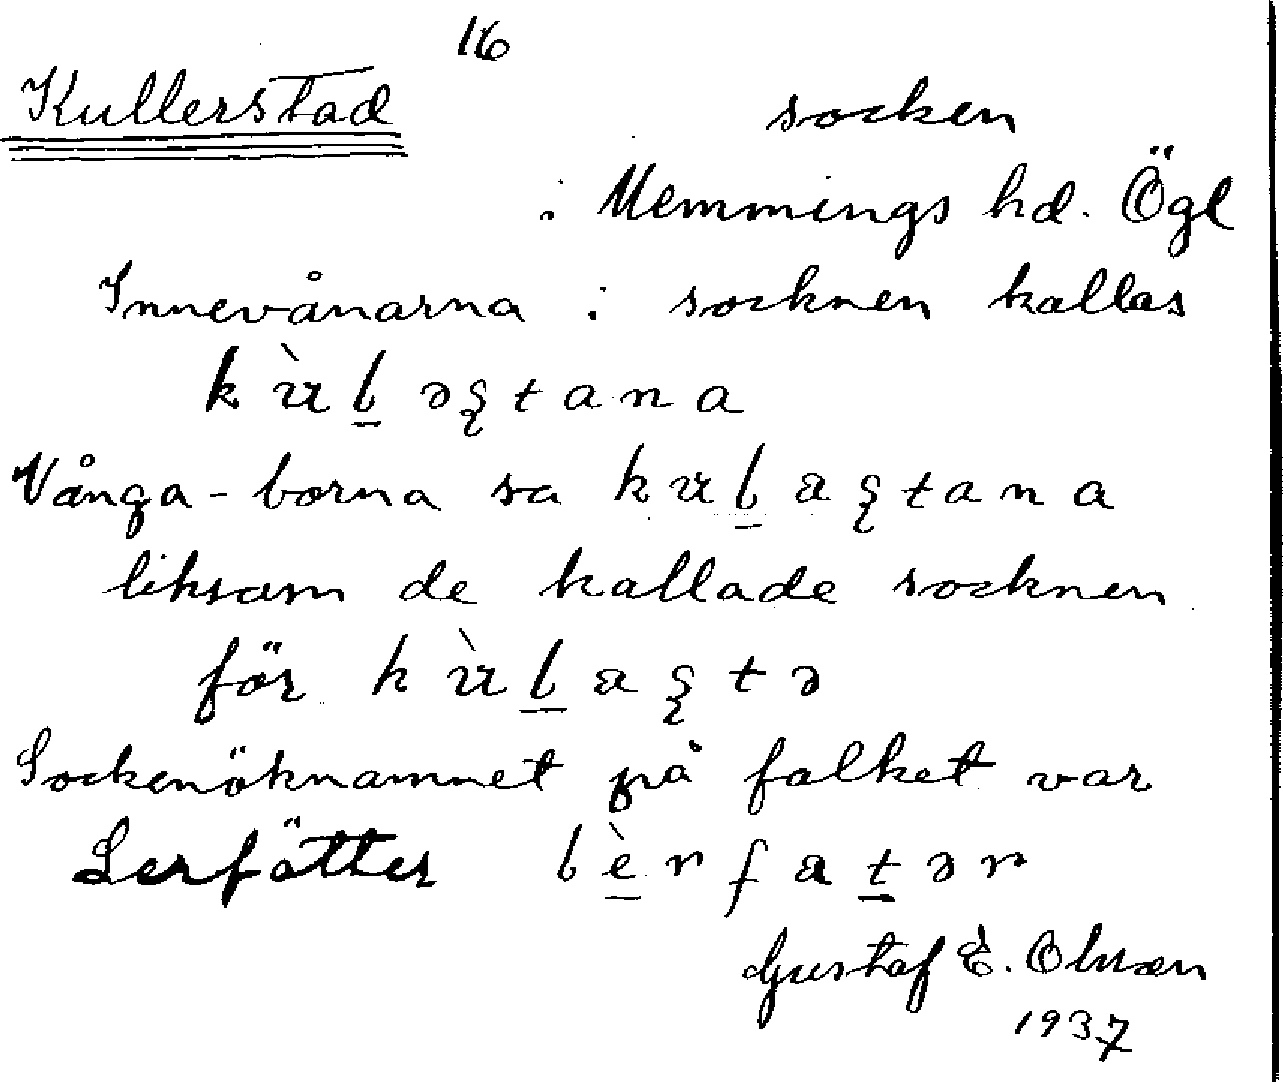 16
Kullerstad socken
i Memmings hd. Ögl
Innevånarna i socknen kallas
kùl̲əʂtana
Vånga-borna sa kul̲aʂtana
liksom de kallade socknen
för kùl̲aʂtə
Sockenöknamnet på folket var
Lerfötter lè̲rfat̲ər
Gustaf E. Olsson
1937